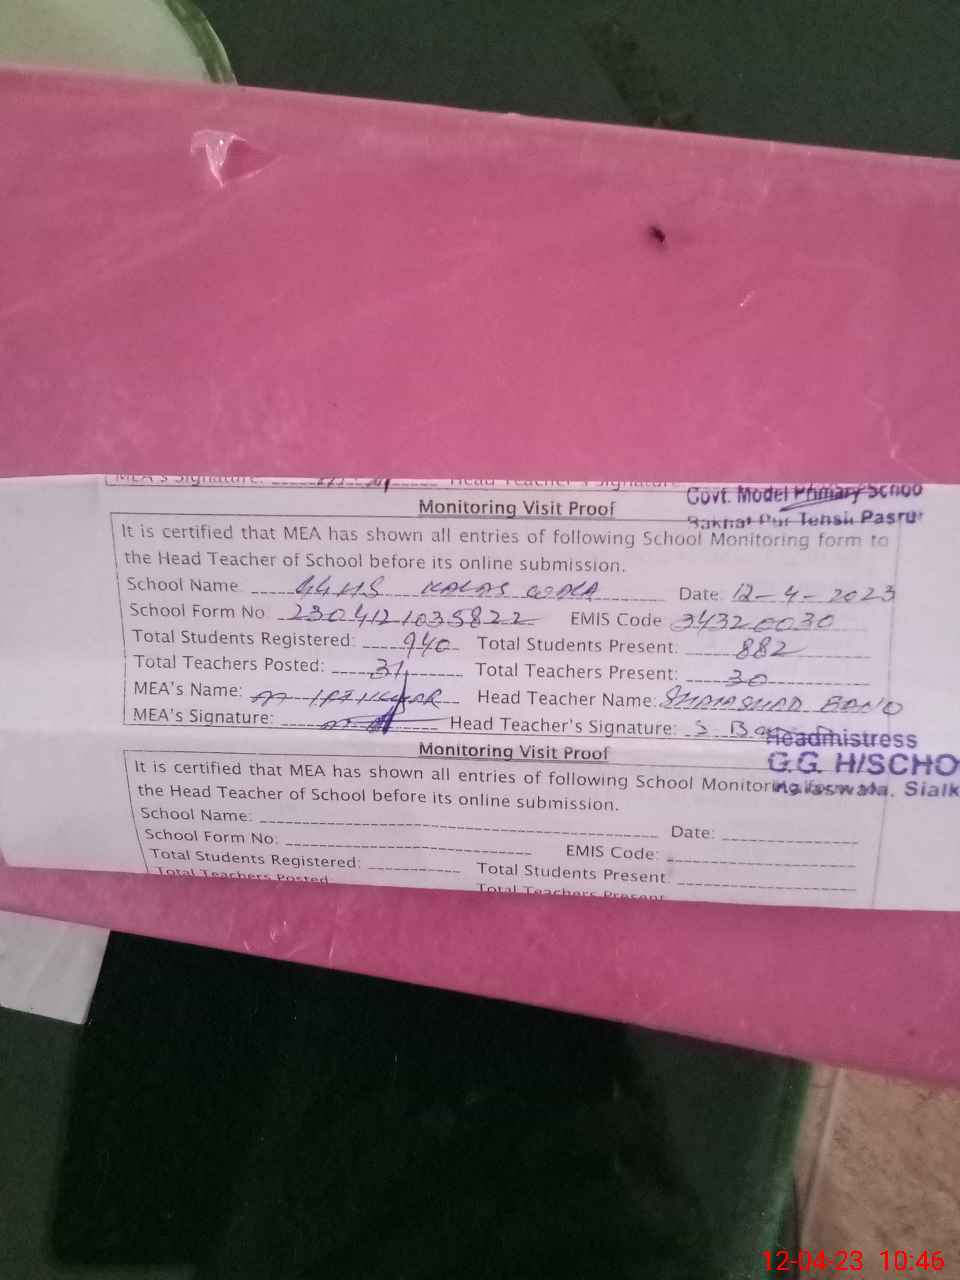 MEA's Signature: Head Teacher's Signature:
Govt. Model Primary Schoo
Tehsil Pasrur
Monitoring Visit Proof
It is certified that MEA has shown all entries of following School Monitoring form to
the Head Teacher of School before its online submission.
School Name GGHS KALAS WALA Date: 12-4-2023
School Form No. 2304121035822 EMIS Code 34320030
Total Students Registered: 940 Total Students Present: 882
Total Teachers Posted: 31 Total Teachers Present: 30
MEA's Name: Head Teacher Name: SHAMSHAD BANO
MEA's Signature: Head Teacher's Signature: S. Bano
Headmistress
G.G. H/SCHO
Kalaswala, Sialk
Monitoring Visit Proof
It is certified that MEA has shown all entries of following School Monitoring form to
the Head Teacher of School before its online submission.
School Name: Date:
School Form No: EMIS Code:
Total Students Registered: Total Students Present:
Total Teachers Posted: Total Teachers Present
12-04-23 10:46